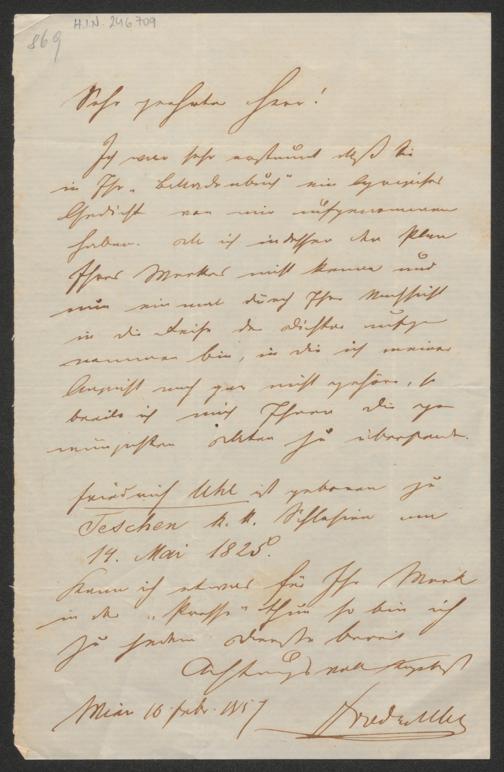 H.I.N. 246709
869
Sehr geehrter Herr!
Ich war sehr erstaunt daß Sie
in Ihr „Balladenbuch" ein lyrisches
Gedicht von mir aufgenommen
haben. Da ich indessen den Plan
Ihres Werkes nicht kenne und
nun einmal durch Ihre Nachsicht
in die Reihe der Dichter aufge-
nommen bin, in die ich meiner
Ansicht nach gar nicht gehöre, so
beeile ich mich Ihnen die ge-
wünschten Daten zu übersenden.
Friedrich Uhl ist geboren zu
Teschen k. k. Schlesien am
14. Mai 1825.
Kann ich etwas für Ihr Werk
in der „Presse" thun so bin ich
zu jedem Dienste bereit
Achtungsvoll
Wien 16 Febr. 1857
Friedr. Uhl